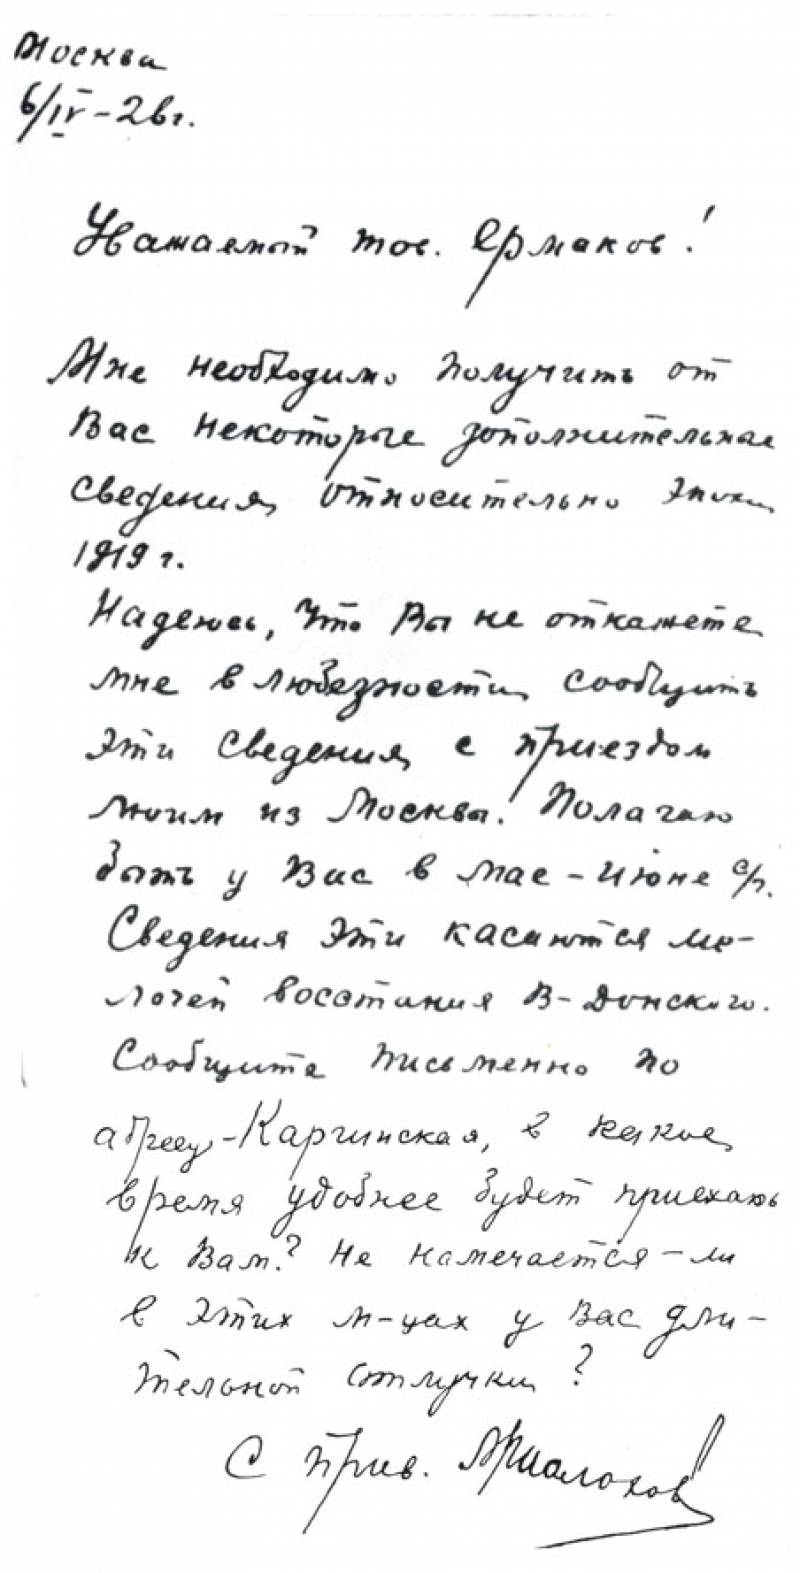 Москва
6/IV-26г.
Уважаемый тов. Ермаков!
Мне необходимо получить от
Вас некоторые дополнительные
сведения относительно эпохи
1919 г.
Надеюсь, что Вы не откажете
мне в любезности сообщить
эти сведения с приездом
моим из Москвы. Полагаю
быть у Вас в мае-июне с/г.
Сведения эти касаются ме-
лочей восстания В-Донского.
Сообщите письменно по
адресу-Каргинская, в какое
время удобнее будет приехать
к Вам? Не намечается-ли
в этих м-цах у Вас дли-
тельной отлучки?
С прив. М. Шолохов